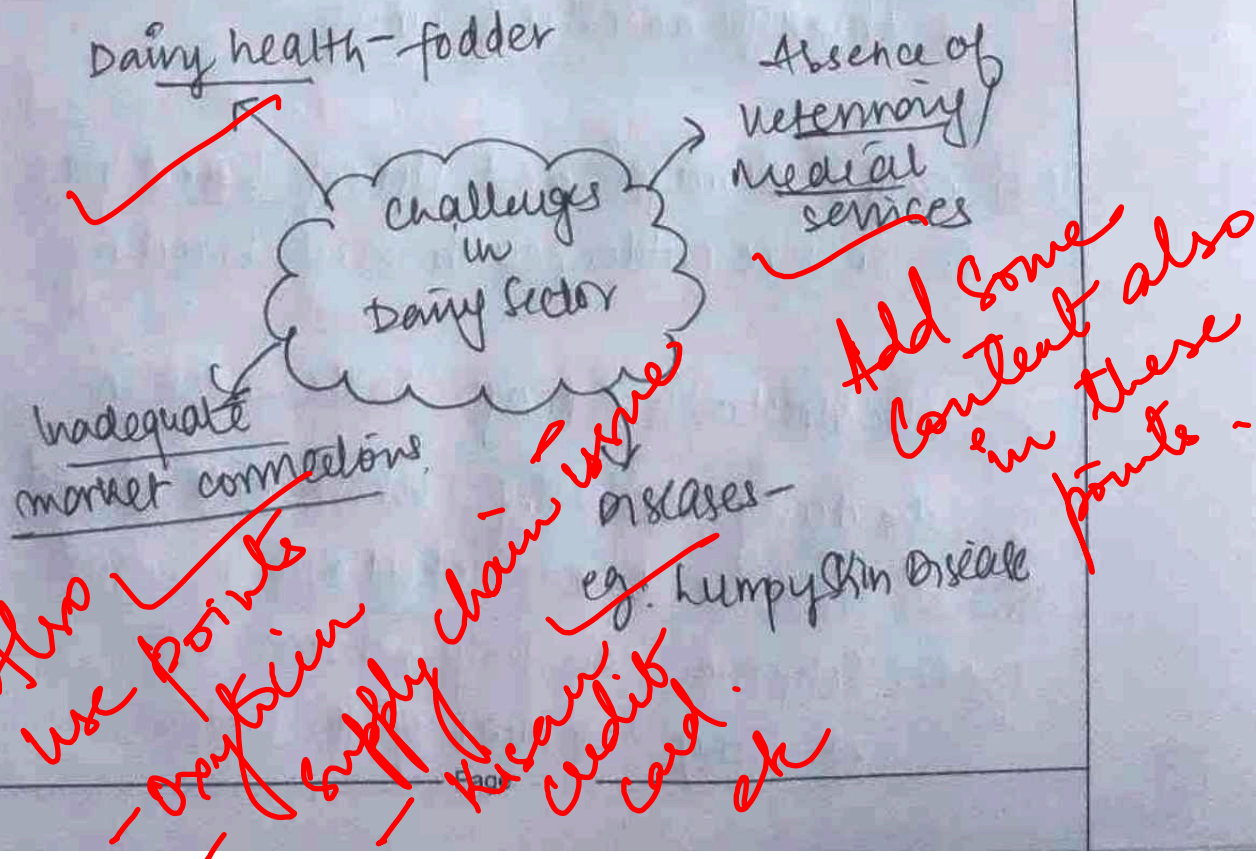 Dairy health - fodder
Absence of
veterinary/
medical
services
challenges
in
Dairy Sector
Inadequate
market connections.
Diseases -
eg. Lumpy Skin Disease
Add some
content also
in these
points -
Also
use points
- oxytocin
- supply chain issue
- Kisan
credit
card.
etc
Page